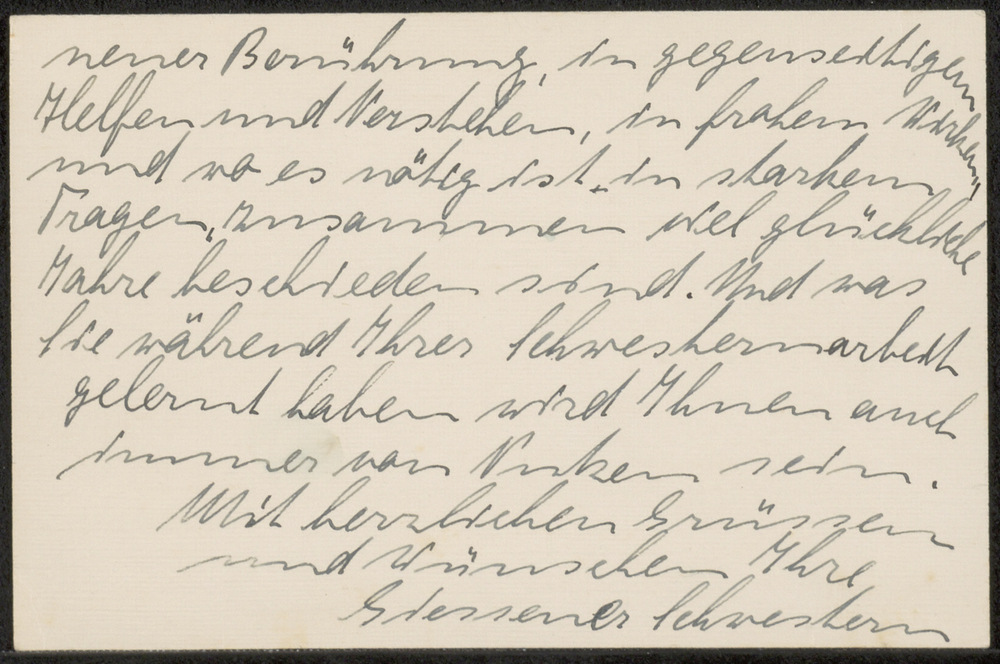 neuer Berührung, in gegenseitigem
Helfen und Verstehen, in frohem Wirken,
und wo es nötig ist, in starkem
Tragen, zusammen viel glückliche
Jahre beschieden sind. Und was
Sie während Ihrer Schwesternarbeit
gelernt haben wird Ihnen auch
immer von Nutzen sein.
Mit herzlichen Grüssen
und Wünschen Ihre
Giessener Schwestern